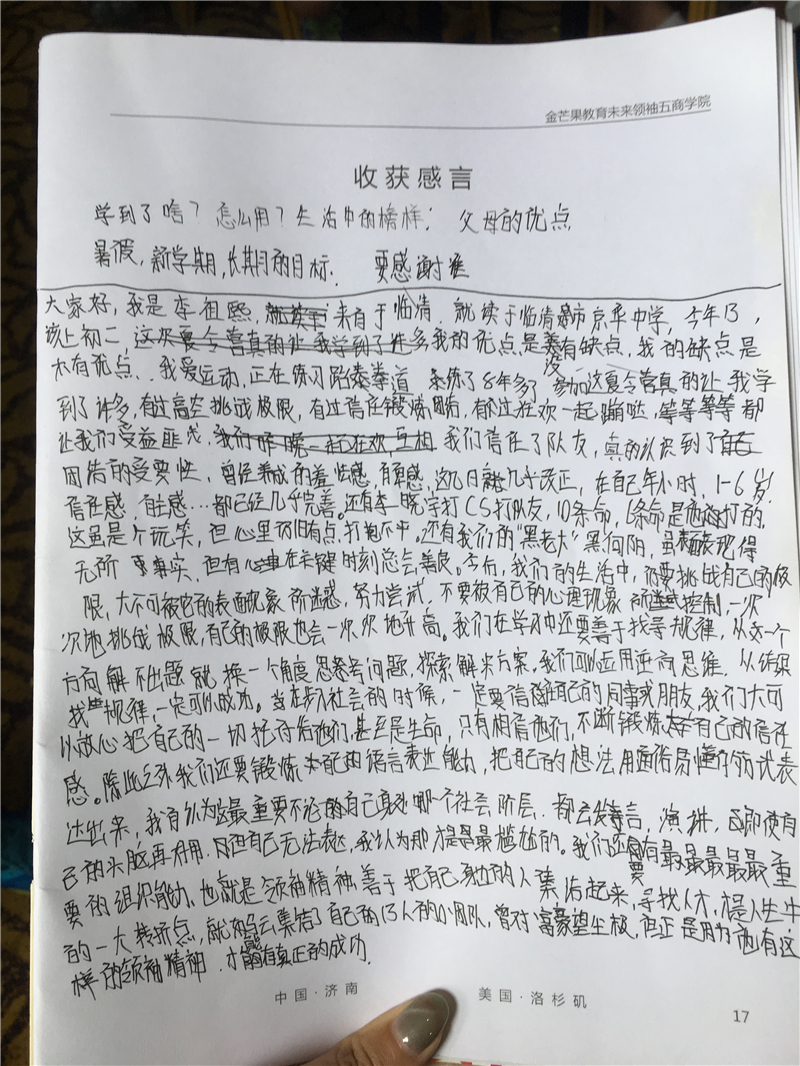 金芒果教育未来领袖五商学院
收获感言
学到了啥？怎么用？生活中的榜样； 父母的优点
暑假，新学期，长期的目标． 要感谢谁
大家好，我是李祖熙， 来自于临清．就读于临清市京华中学，今年13，
该上初二，这次夏令营真的让我学到了许多我的优点是没有缺点，我的缺点是
太有优点．我爱运动，正在练习跆拳道 练了8年多了，参加这夏令营真的让我学
到了许多，有过高空挑战极限，有过信任锻炼团结，有过狂欢一起蹦哒，等等等等都
让我们受益匪浅，我们昨晚一起狂欢，互相 我们信任了队友，真的认识到了
团结的重要性，曾经养成的羞怯感，自卑感，这几日几乎改正，在自己年小时，1-6岁
信任感，自主感…都已经几乎完善。还有李一晓宇打CS打队友，10条命，6条命是他打的，
这虽是个玩笑，但心里仍旧有点，打抱不平。还有我们的“黑老大”黑向阳，虽表面表现得
无所事事实，但有心在关键时刻总会善良。今后，我们的生活中，仍要挑战自己的极
限，大不可被它的表面现象所迷惑，努力尝试，不要被自己的心理现象所控制，一次
次地挑战极限，自己的极限也会一次次地升高。我们在学习中还要善于找寻规律，从这一个
方向解不出题就换一个角度思考问题，探索解决方案，我们可以运用逆向思维，从结果
找规律，一定可以成功。当在步入社会的时候，一定要信任自己的同事或朋友，我们大可
以放心把自己的一切托付给他们，甚至是生命，只有相信他们，不断锻炼自己的信任
感。除此之外我们还要锻炼自己的语言表达能力，把自己的想法用通俗易懂的方式表
达出来，我自认为这最重要不论自己身处哪个社会阶层．都会发言，演讲，即使有
己的头脑再好用．但自己无法表达，我认为那才是最尴尬的。我们还要有最最最最最重
要的组织能力，也就是领袖精神善于把自己身边的人集结起来，寻找人才，是人生中
的一大转折点，就如马云集结了自己的13人的小团队，曾对富豪望尘莫及，但正是因为他有这
样的领袖精神．才能有真正的成功．
中国·济南 美国·洛杉矶
17